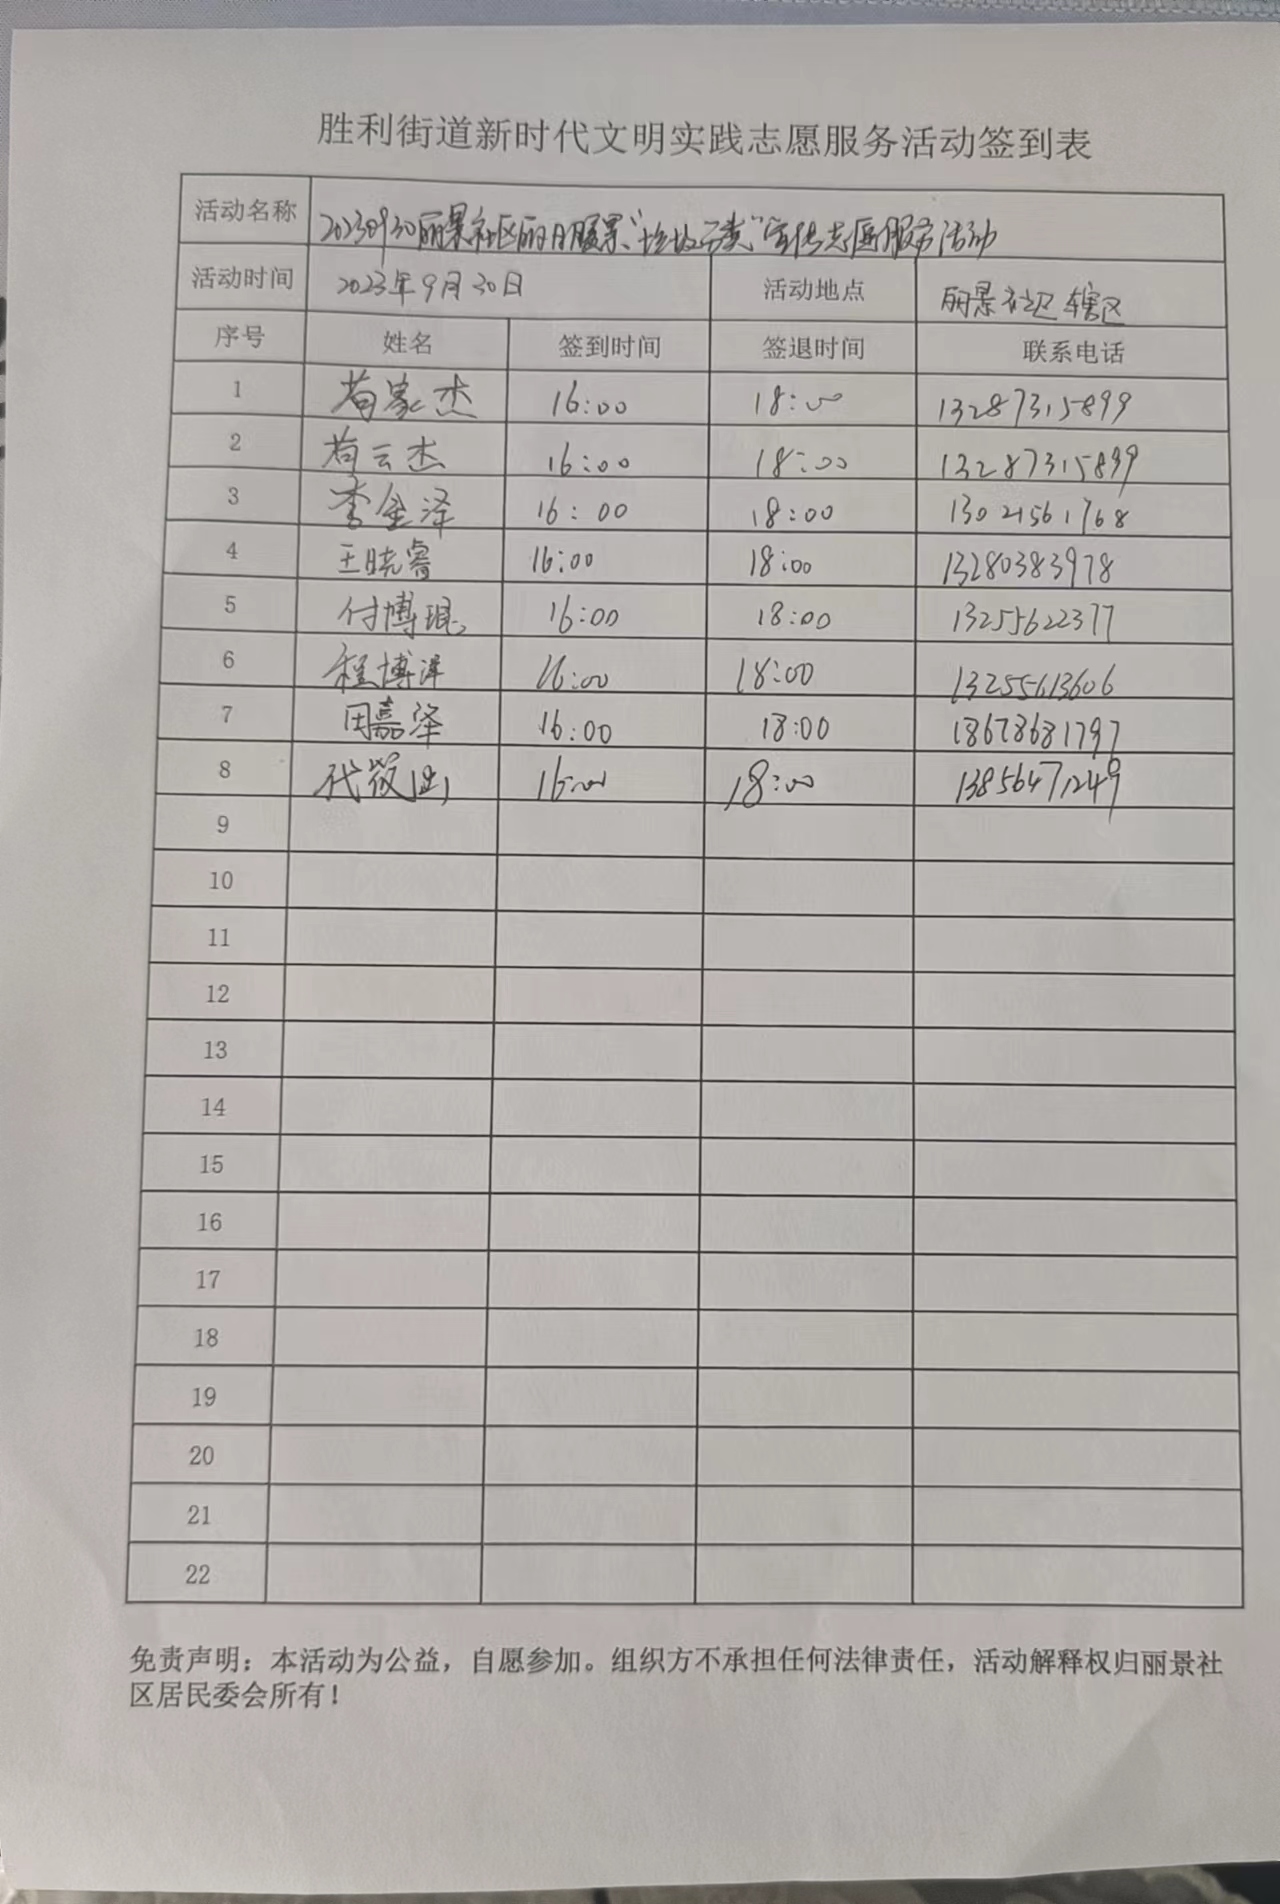 胜利街道新时代文明实践志愿服务活动签到表
活动名称 20230930丽景社区 "垃圾分类"宣传志愿服务活动
活动时间 2023年9月30日 活动地点 丽景社区辖区
序号 姓名 签到时间 签退时间 联系电话
1 苟家杰 16:00 18:00 13287315899
2 苟云杰 16:00 18:00 13287315899
3 李金泽 16:00 18:00 13021561768
4 王晓睿 16:00 18:00 13280383978
5 付博琨 16:00 18:00 13255622377
6 程博洋 16:00 18:00 13255613606
7 田嘉泽 16:00 18:00 18678681797
8 代 16:00 18:00 13856471249
9
10
11
12
13
14
15
16
17
18
19
20
21
22
免责声明：本活动为公益，自愿参加。组织方不承担任何法律责任，活动解释权归丽景社
区居民委会所有！